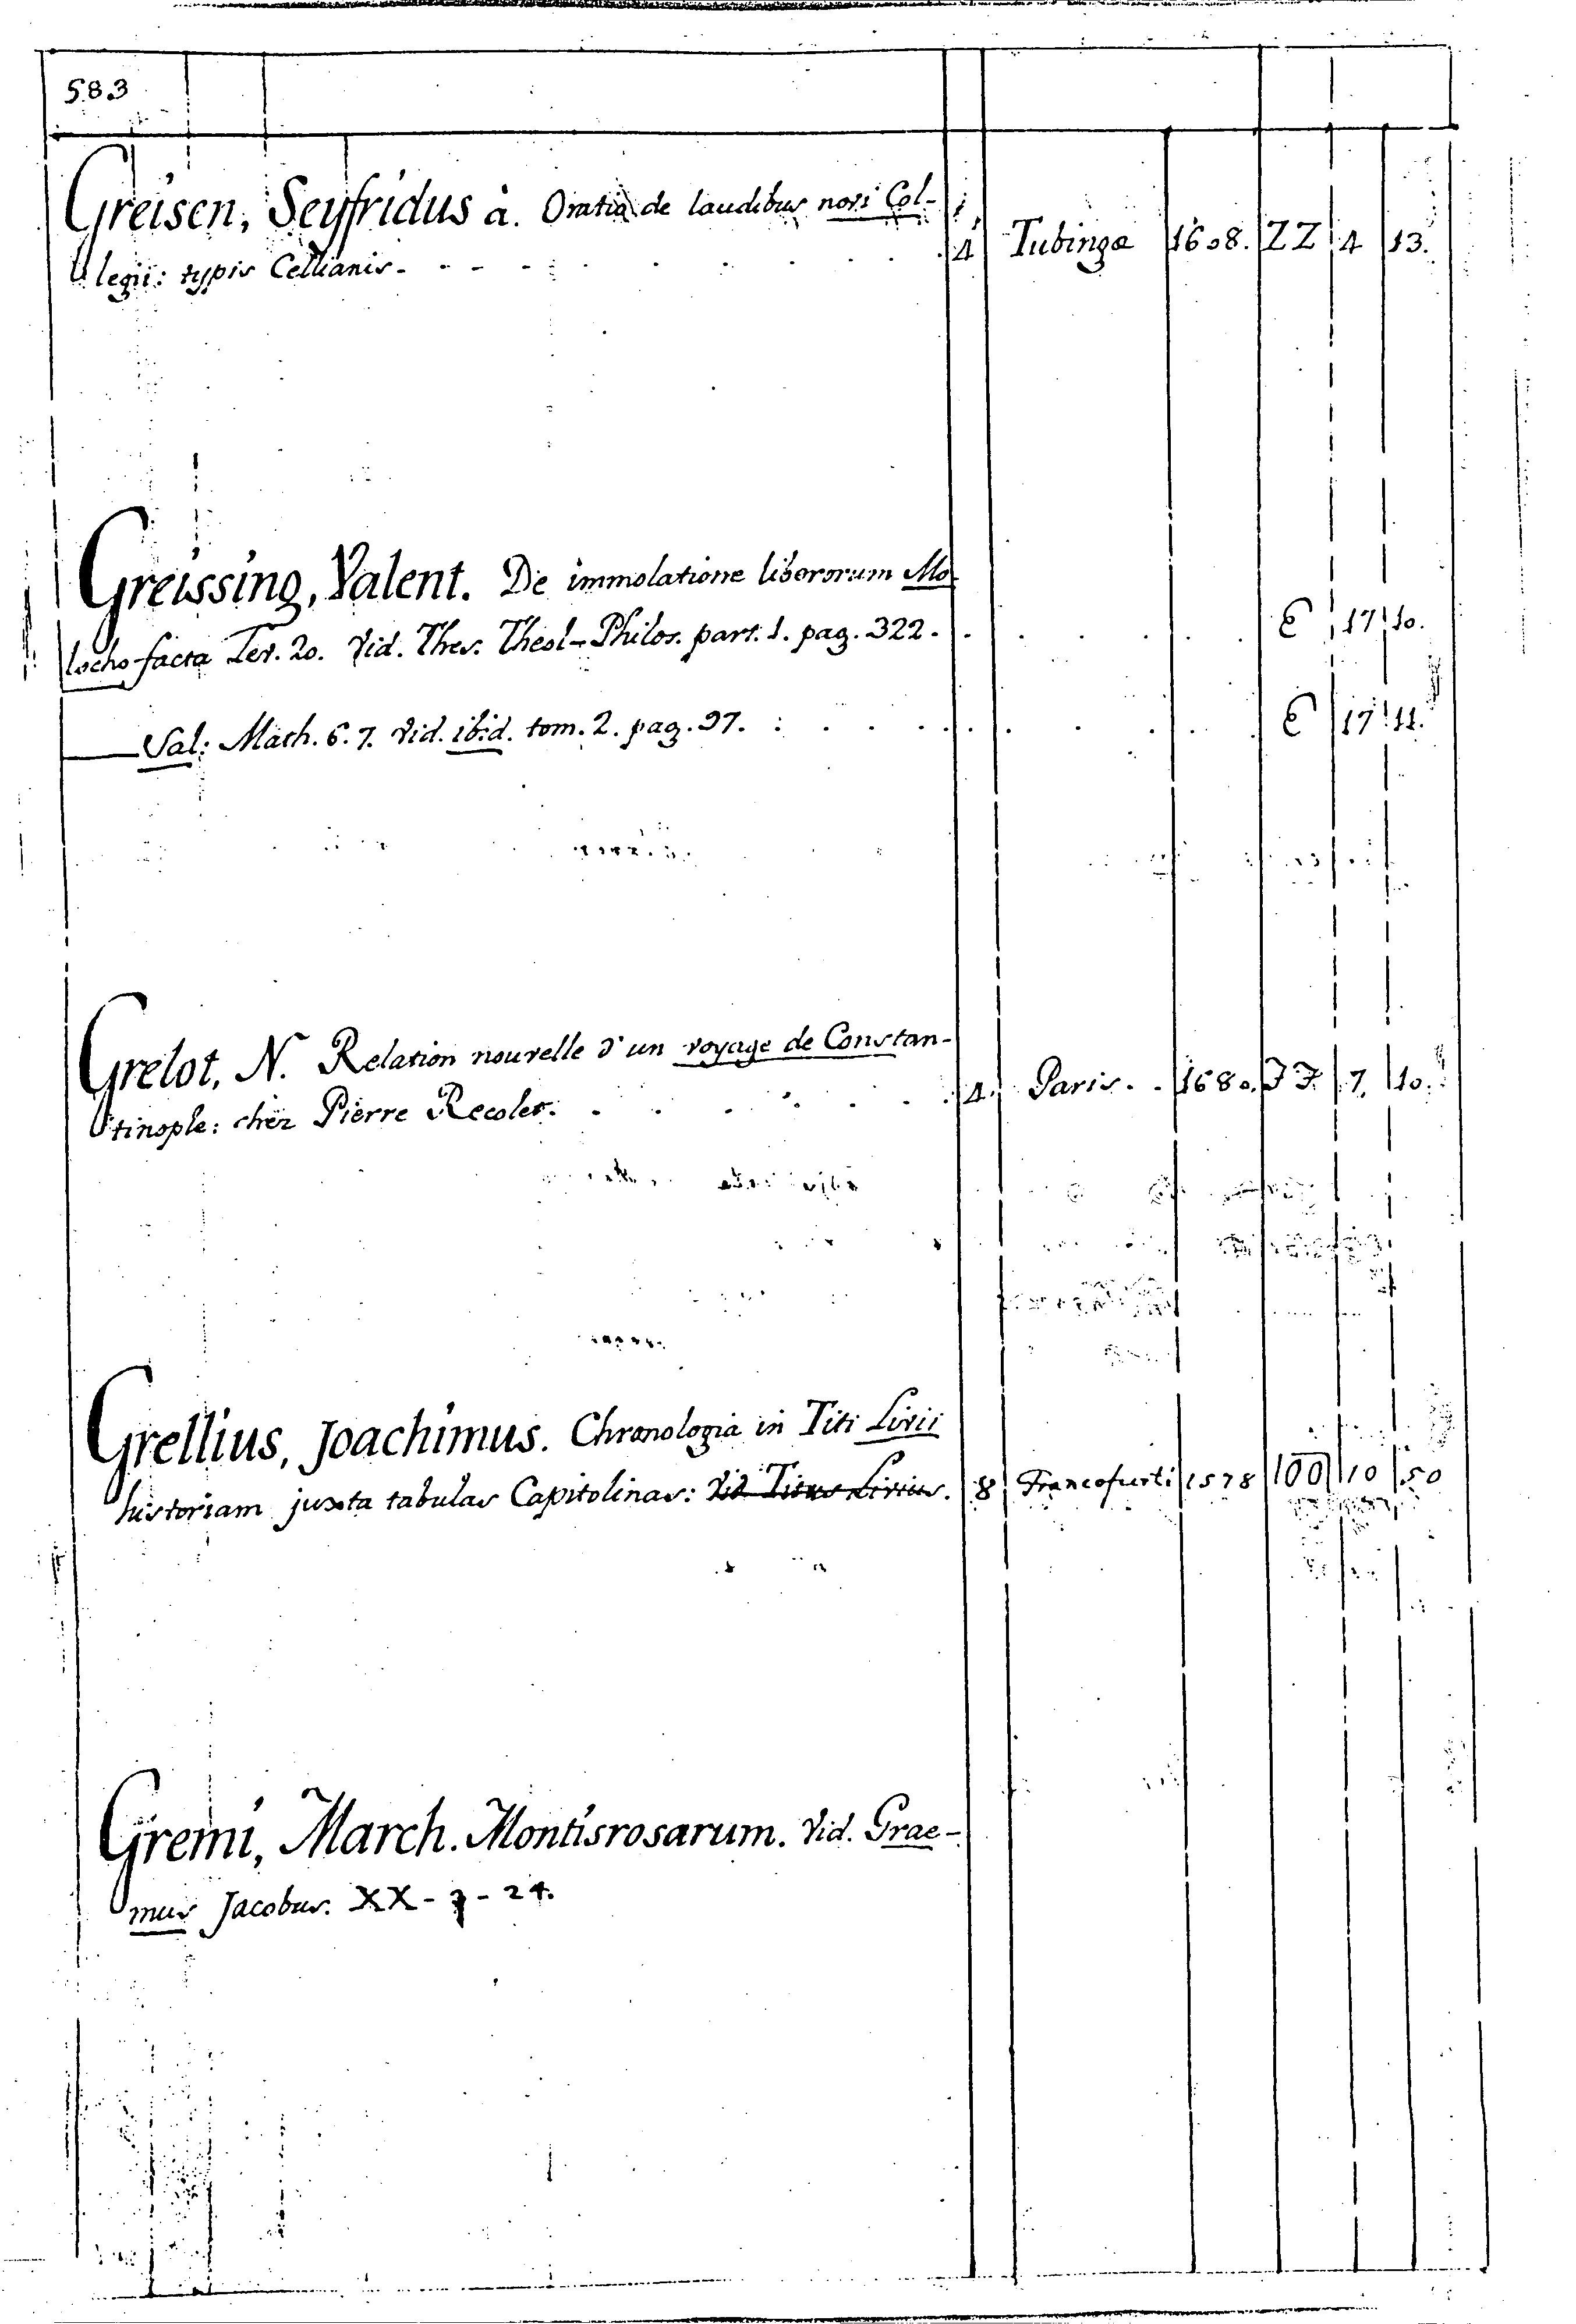 583
Greisen, Seyfridus à. Oratio de laudibus novi Col-
legii: typis Cellianis. 4 Tubingæ 1608. ZZ 4 13.
Greissing, Valent. De immolatione liberorum Mo-
locho facta Lev. 20. Vid. Thes. Theol-Philos. part. 1. pag. 322. E 17 10.
Sal: Math. 6. 7. Vid. ibid. tom. 2. pag. 97. E 17 11.
Grelot, N. Relation nouvelle d'un voyage de Constan-
tinople: chez Pierre Recolet. 4. Paris. 1680. FF 7. 10.
Grellius, Joachimus. Chronologia in Titi Livii
historiam juxta tabulas Capitolinas: Vid Titus Livius. 8 Francofurti 1578 100 10 50
Gremi, March. Montisrosarum. Vid. Grae-
mus Jacobus. XX - 7 - 24.